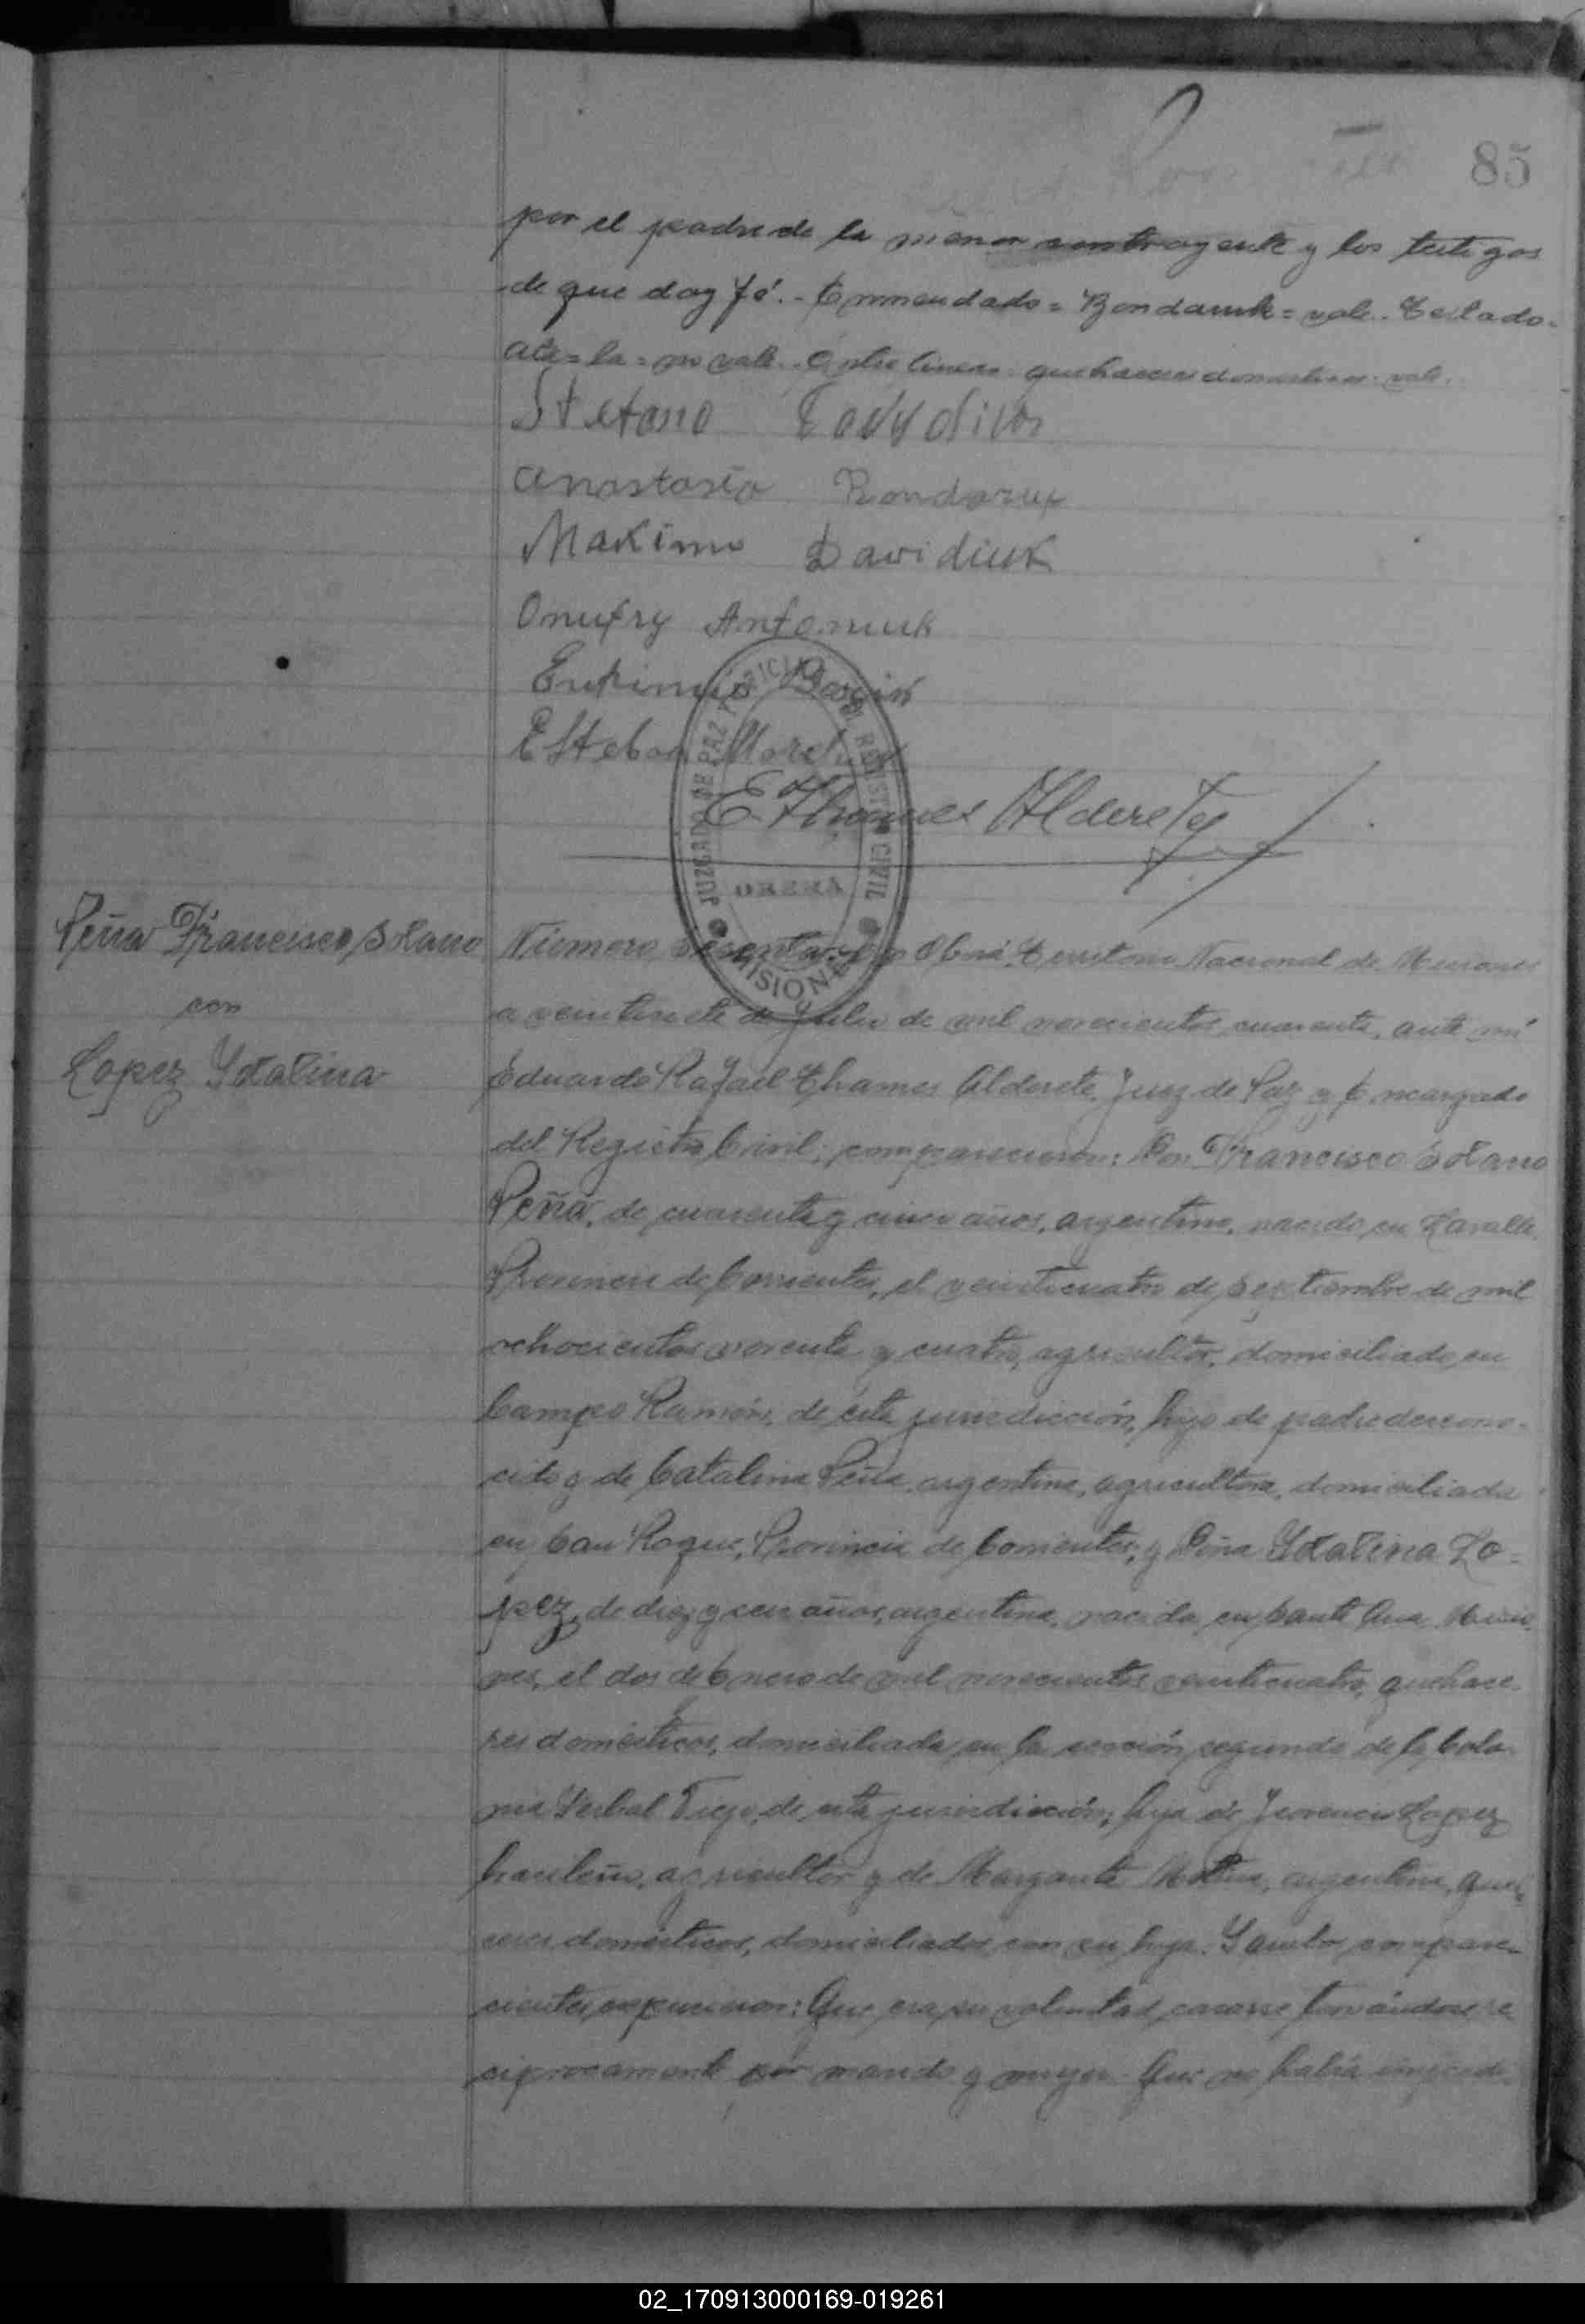 85
por el padre de la menor contrayente y los testigos
de que doy fé.- Enmendado= Bondaruk= vale. Testado-
la= no vale.- Entre lineas: quehaceres domesticos: vale.
Stefano
Anastasia Bondaruk
Makimo Dawidiuk
Onufry Antoniuk
Eufimio
Esteban
EThames Alderete
JUZGADO DE PAZ Y OFICINA DEL REGISTRO CIVIL
OBERA
MISIONES
Peña Francisco Solano
con
Lopez Ydalina
Número sesenta. En Oberá, Territorio Nacional de Misiones
a veintisiete de Julio de mil novecientos cuarenta, ante mí
Eduardo Rafael Thames Alderete, Juez de Paz y Encargado
del Registro Civil; comparecieron: Don Francisco Solano
Peña, de cuarenta y cinco años, argentino, nacido en Lavalle,
Provincia de Corrientes, el veinticuatro de Septiembre de mil
ochocientos noventa y cuatro, agricultor, domiciliado en
Campo Ramón, de ésta jurisdicción, hijo de padre descono-
cido y de Catalina Peña, argentina, agricultora, domiciliada
en San Roque, Provincia de Corrientes; y Doña Ydalina Lo-
pez, de diez y seis años, argentina, nacida en Santa Ana, Misio-
nes, el dos de Enero de mil novecientos veinticuatro, quehace-
res domésticos, domiciliada en la sección segunda de la Colo-
nia Yerbal Viejo, de esta jurisdicción; hija de Juvencio Lopez
brasileño, agricultor y de Margarita Molina, argentina, queha-
ceres domésticos, domiciliados con su hija. Y ambos compare-
cientes expusieron: Que era su voluntad casarse tomándose re-
ciprocamente por marido y mujer. Que no había impedi-
02_170913000169-019261